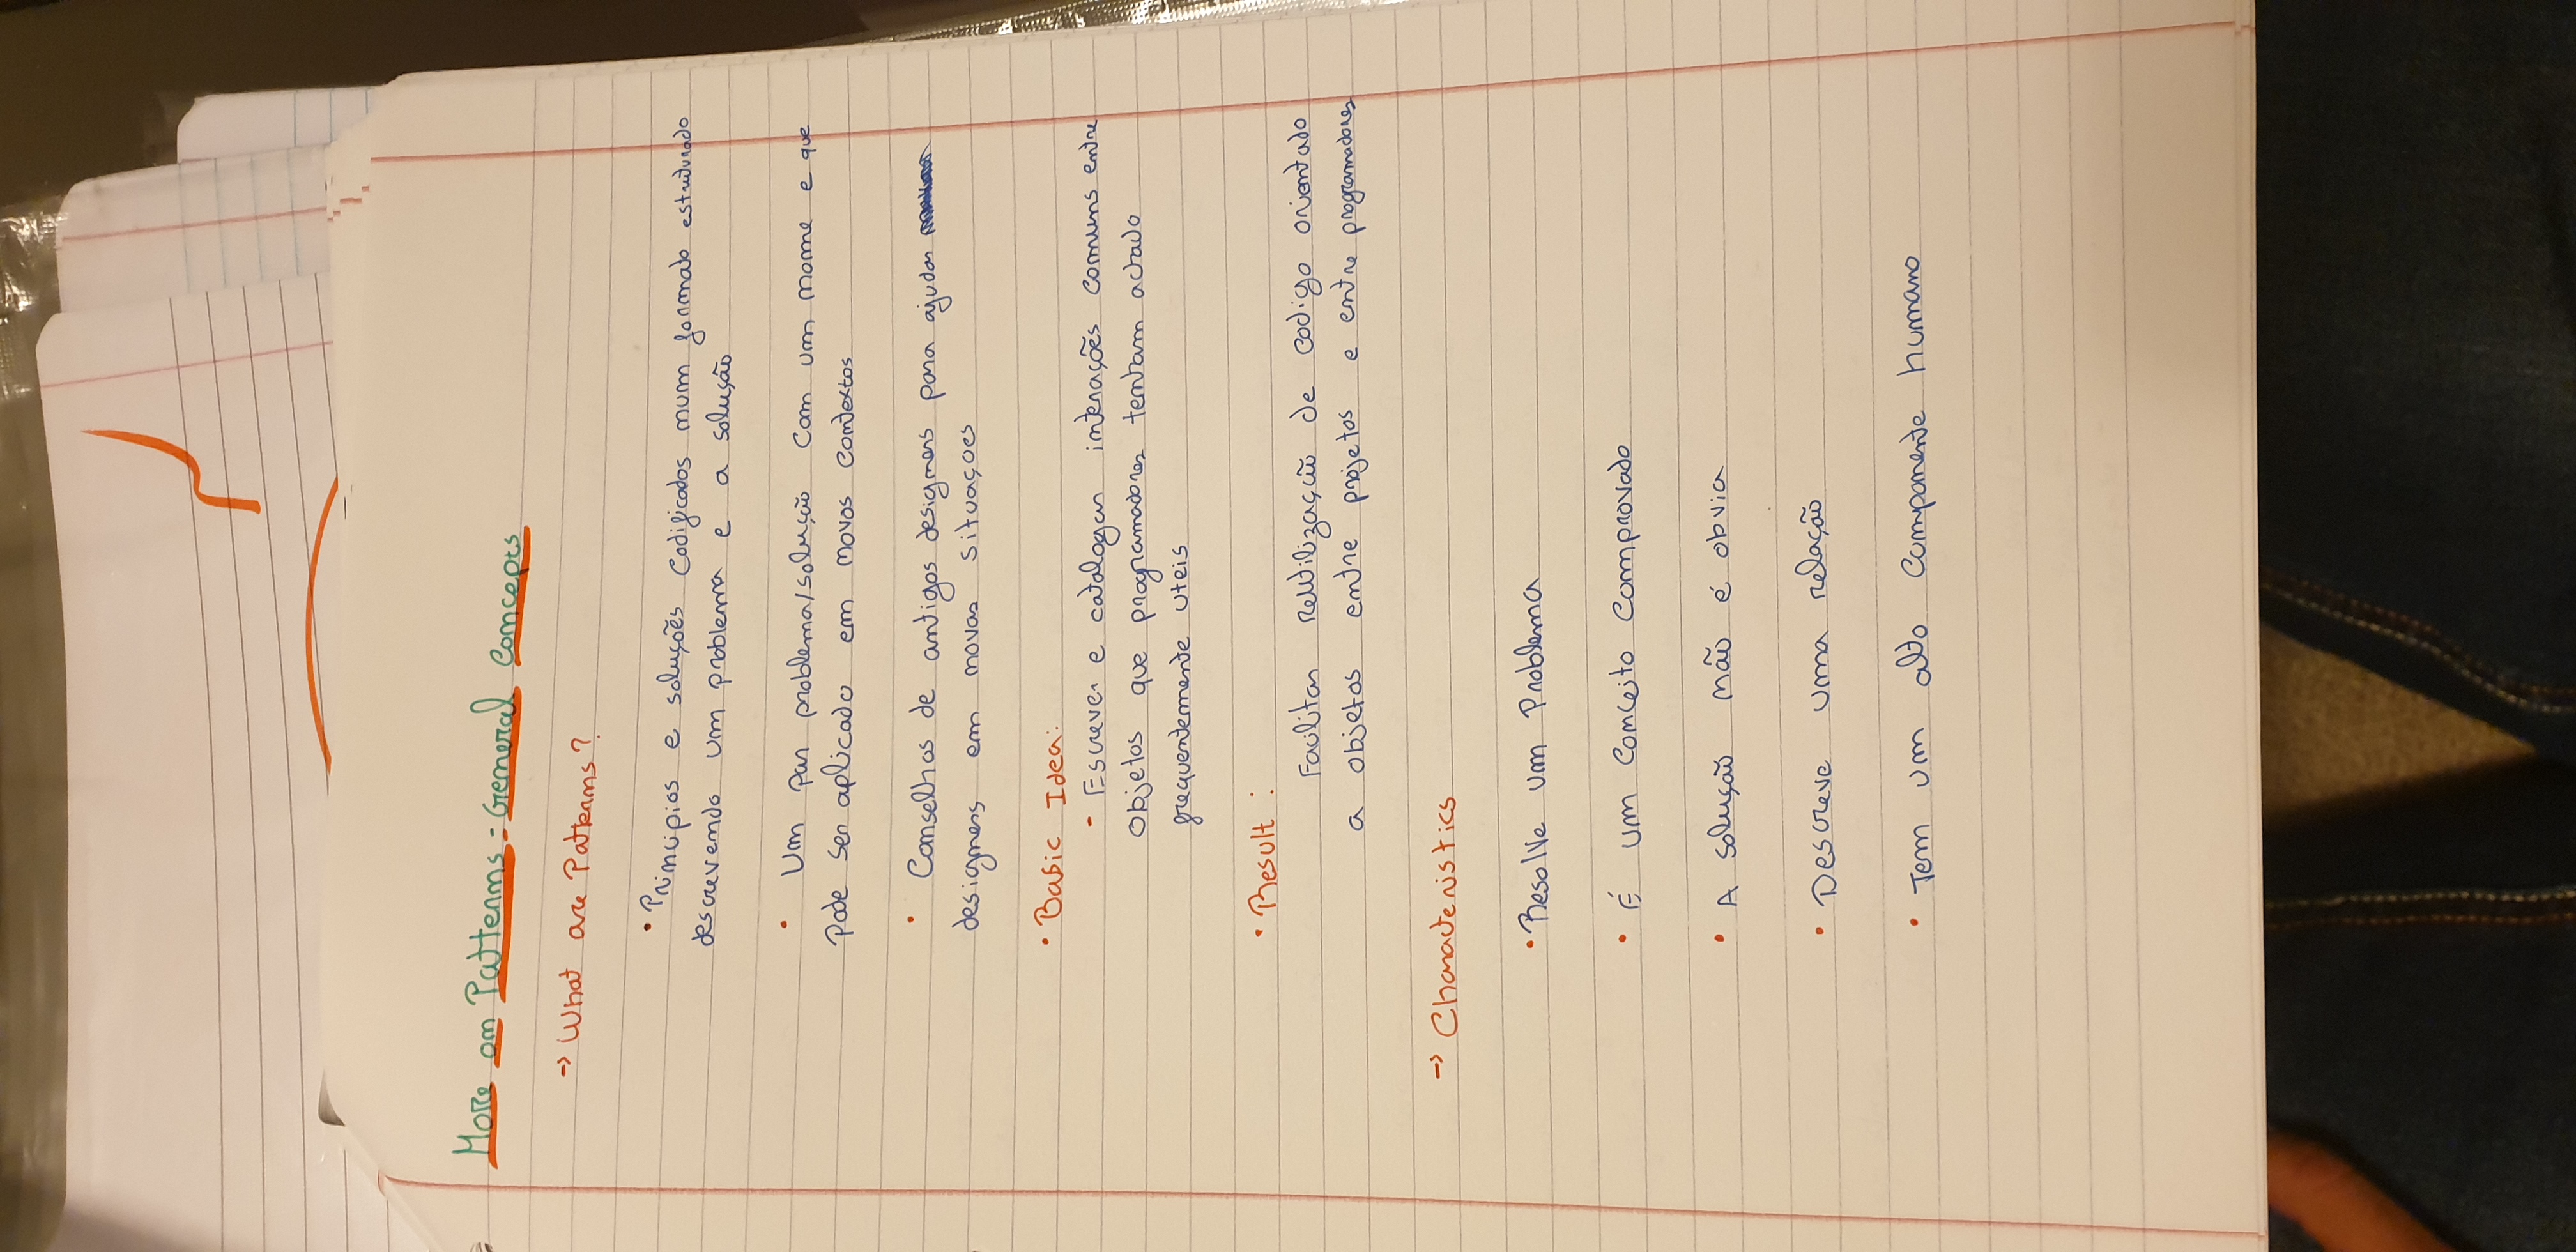 More on Patterns = General Concepts
→ What are Patterns?
• Principios e soluções codificados num formato estruturado
descrevendo um problema e a solução
• Um par problema/solução com um nome e que
Pode ser aplicado em novos contextos
• Conselhos de antigos designers para ajudar
designers em novas situaçoes
• Basic Idea:
- Escrever e catalogar interações comuns entre
objetos que programadores tenham achado
frequentemente uteis
• Result :
Facilitar reutilização de codigo orientado
a objetos entre projetos e entre programadores
→ Characteristics
• Resolve um Problema
• É um conceito comprovado
• A solução não é obvia
• Descreve uma relação
• Tem um alto componente humano